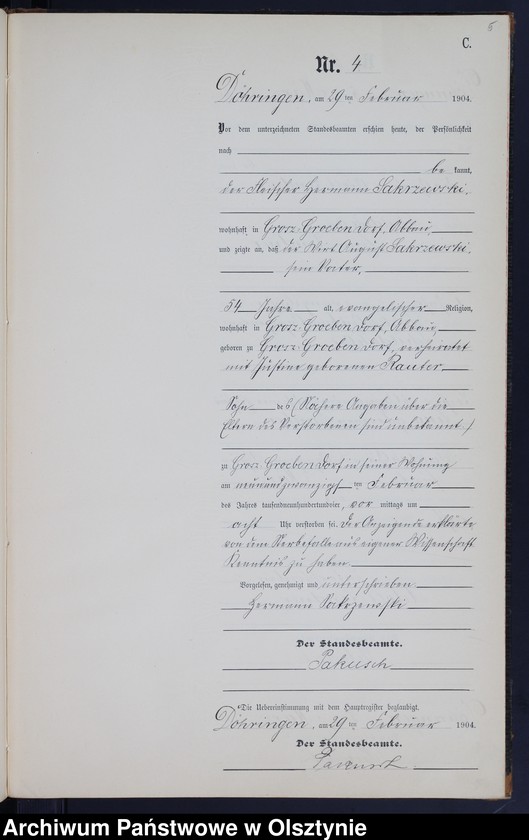 5
C.
Nr. 4
Döhringen, am 29 ten Februar 1904.
Vor dem unterzeichneten Standesbeamten erschien heute, der Persönlichkeit
nach
be kannt,
der Fleischer Hermann Sakrzewski,
wohnhaft in Grosz Groeben Dorf, Abbau,
und zeigte an, daß der Wirt August Sakrzewski,
sein Vater,
54 Jahre alt, evangelischer Religion,
wohnhaft in Grosz Groeben Dorf, Abbau,
geboren zu Grosz Groeben Dorf, verheiratet
mit Justine geborenen Rauter
Sohn des (Nähere Angaben über die
Eltern des Verstorbenen sind unbekannt.)
zu Grosz Groeben Dorf in seiner Wohnung
am neunundzwanzigsten Februar
des Jahres tausendneunhundertundvier, vor mittags um
acht Uhr verstorben sei. Der Anzeigende erklärte
von dem Sterbefalle aus eigener Wissenschaft
Kenntnis zu haben.
Vorgelesen, genehmigt und unterschrieben
Hermann Sakrzewski
Der Standesbeamte.
Pakusch
Die Uebereinstimmung mit dem Hauptregister beglaubigt.
Döhringen, am 29 ten Februar 1904.
Der Standesbeamte.
Pakusch
Archiwum Państwowe w Olsztynie